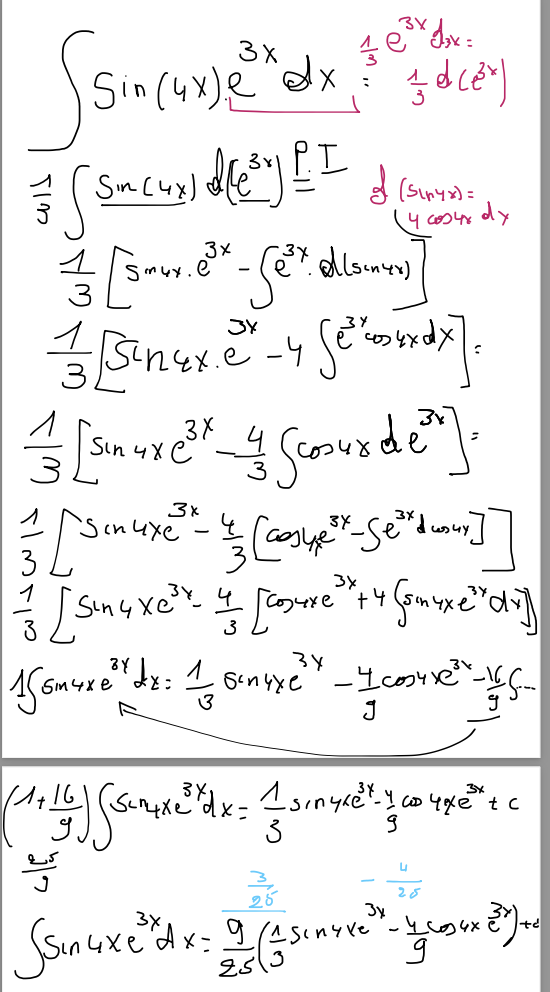 ∫ sin(4x).e^{3x} dx = 1/3 e^{3x} d3x =
1/3 d(e^{3x})
1/3 ∫ sin(4x) d(e^{3x}) P.I
d(sin4x) =
4 cos4x dx
1/3 [sin4x.e^{3x} - ∫e^{3x}.d(sin4x)]
1/3 [sin4x.e^{3x} - 4 ∫e^{3x} cos4x dx] =
1/3 [sin4x e^{3x} - 4/3 ∫cos4x de^{3x}] =
1/3 [sin4x e^{3x} - 4/3 [cos4x e^{3x} - ∫e^{3x} d cos4x]]
1/3 [sin4x e^{3x} - 4/3 [cos4x e^{3x} + 4 ∫sin4x e^{3x} dx]]
1∫sin4x e^{3x} dx = 1/3 sin4x e^{3x} - 4/9 cos4x e^{3x} - 16/9 ∫...
(1+16/9) ∫sin4x e^{3x} dx = 1/3 sin4x e^{3x} - 4/9 cos4x e^{3x} + c
25/9
3/25 - 4/25
∫sin4x e^{3x} dx = 9/25 (1/3 sin4x e^{3x} - 4/9 cos4x e^{3x}) + c